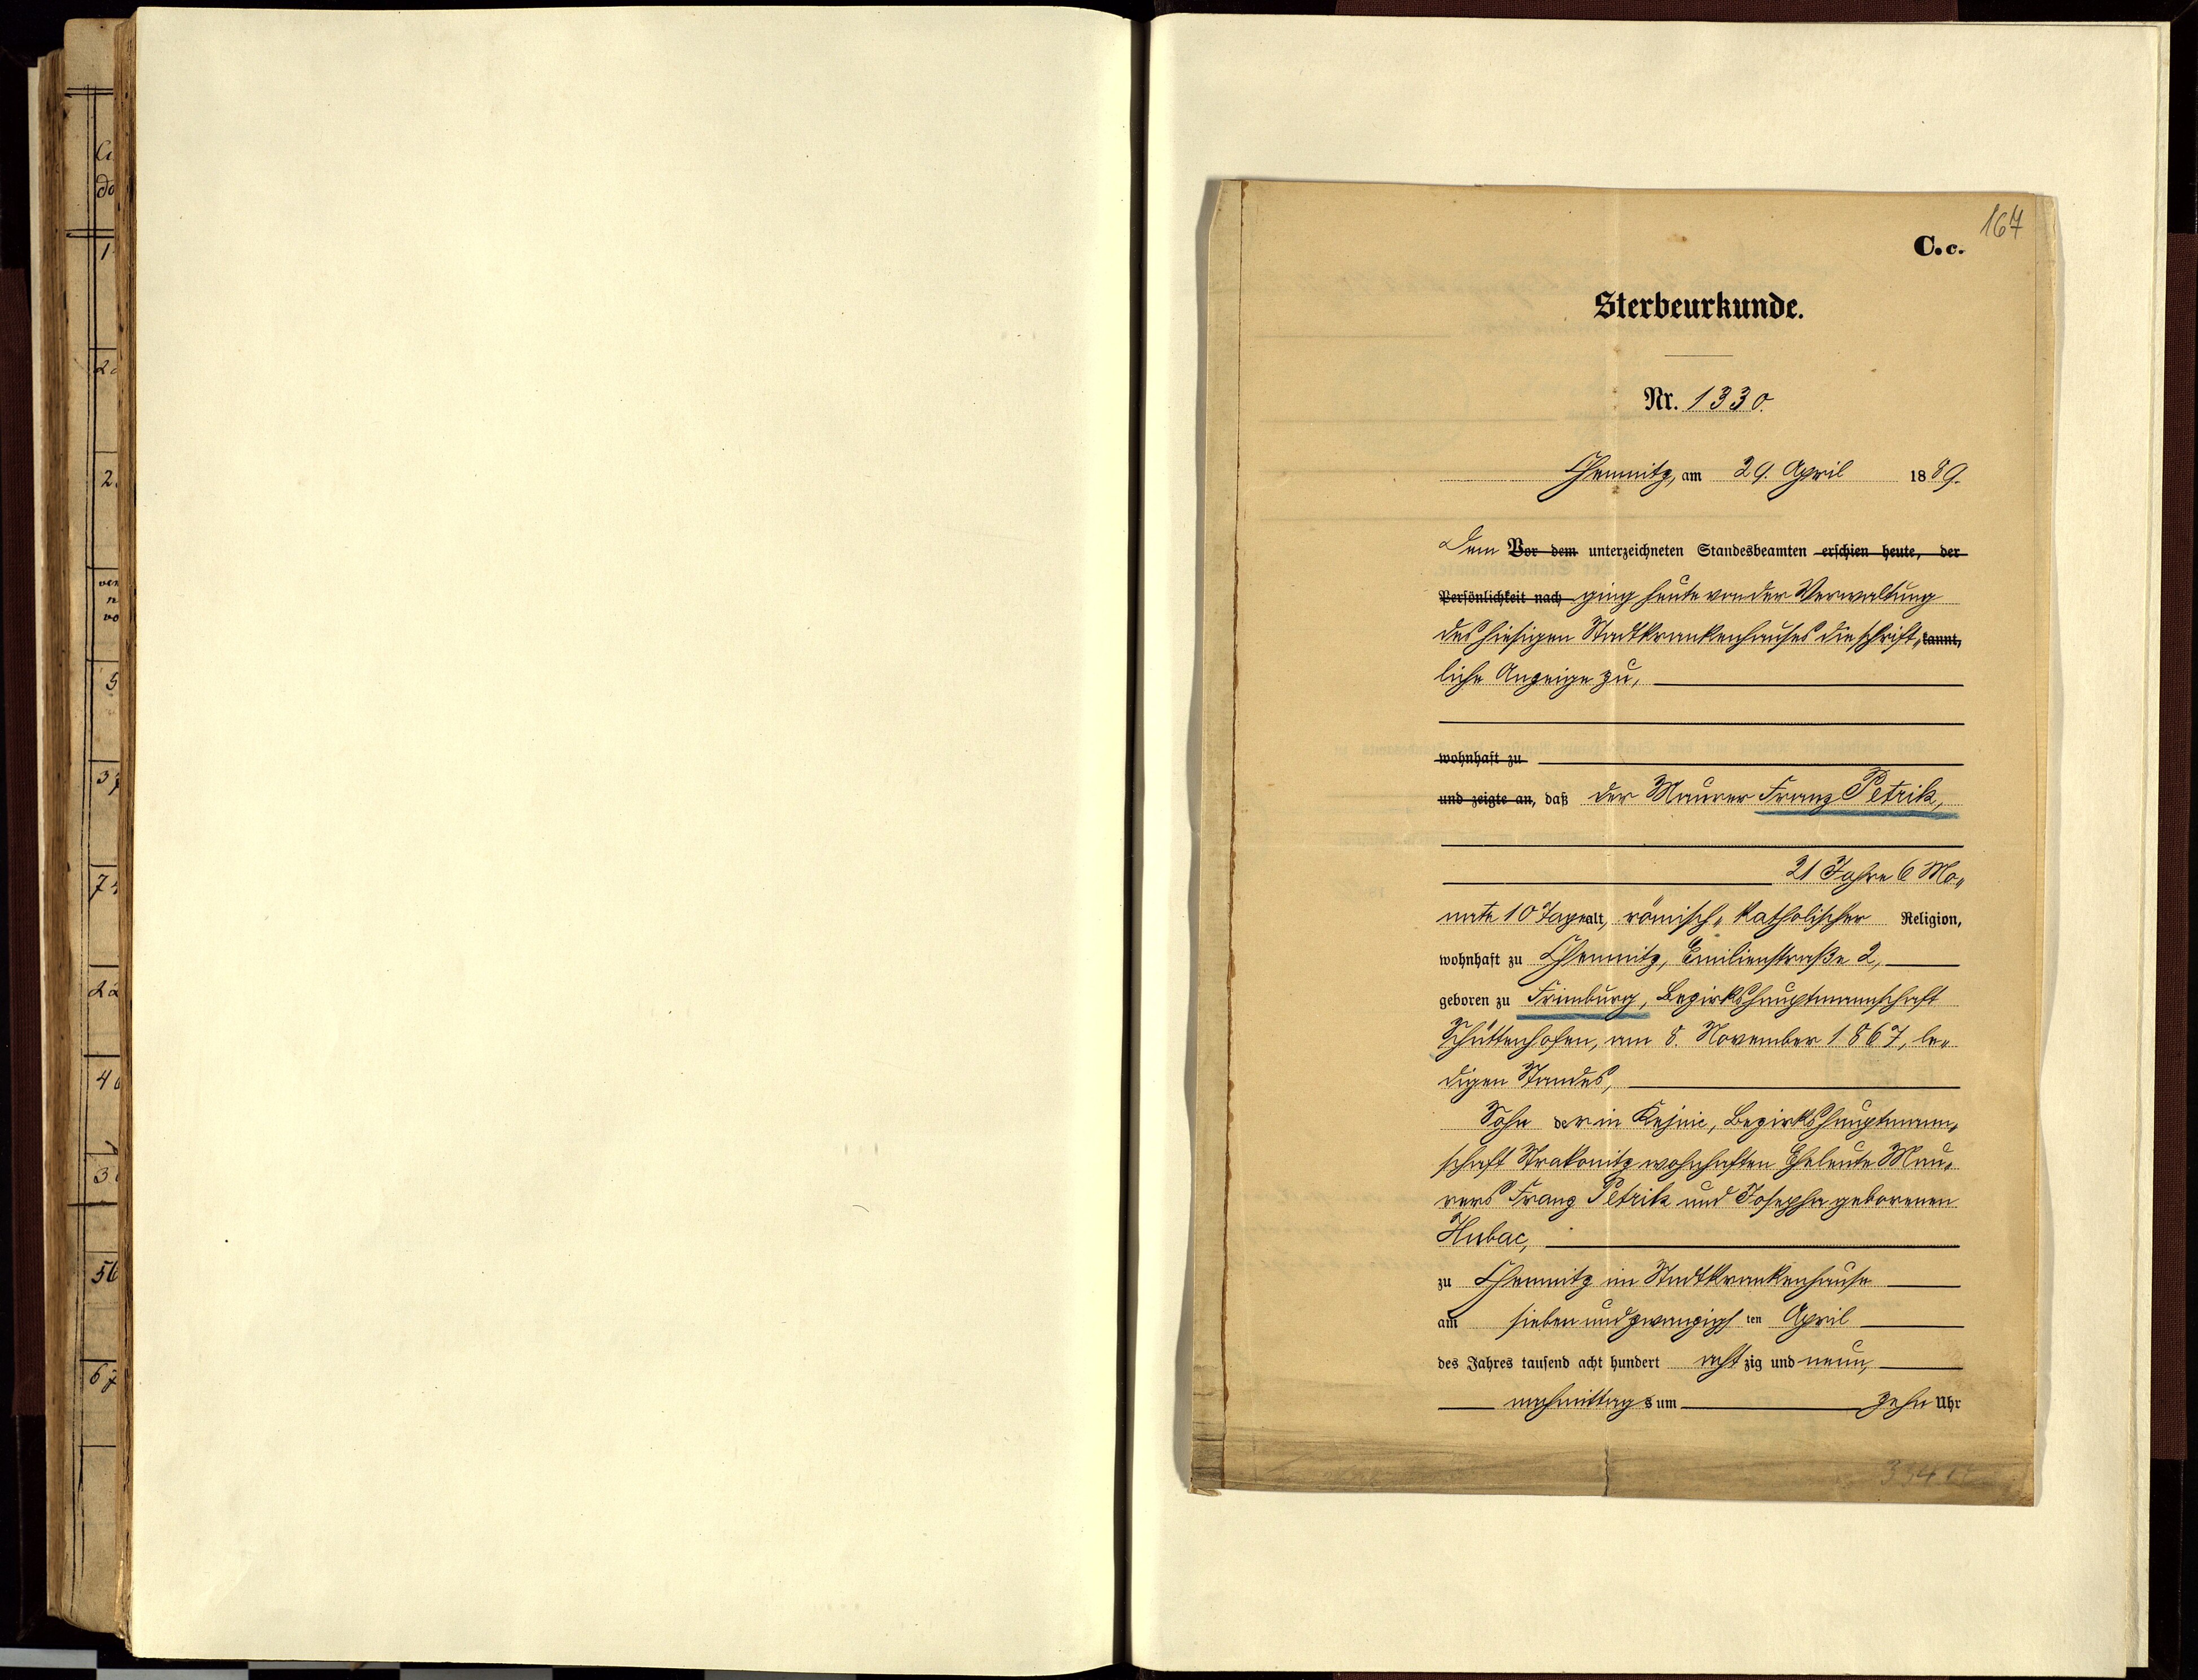 167
C.c.
Sterbeurkunde.
Nr. 1330.
Chemnitz, am 29. April 1889.
Dem Vor dem unterzeichneten Standesbeamten erschien heute, der
Persönlichkeit nach ging heute von der Verwaltung
des hiesigen Stadtkrankenhauses die schrift„ kannt,
liche Anzeige zu,
wohnhaft zu
und zeigte an, daß der Maurer Franz Petrik,
21 Jahre 6 Mo„
nate 10 Tage alt, römisch„ katholischer Religion,
wohnhaft zu Chemnitz, Emilienstraße 2,
geboren zu Frimburg, Bezirkshauptmannschaft
Schüttenhofen, am 8. November 1867, le„
digen Standes,
Sohn der in Kejnic, Bezirkshauptmann„
schaft Strakonitz wohnhaften Eheleute Mau„
rers Franz Petrik und Josepha geborenen
Hubac,
zu Chemnitz im Stadtkrankenhause
am siebenundzwanzigs ten April
des Jahres tausend acht hundert acht zig und neun,
nachmittag s um zehn Uhr
Ci
do
1
2
ver
n
vo
5
37
7
22
4
3
56
67